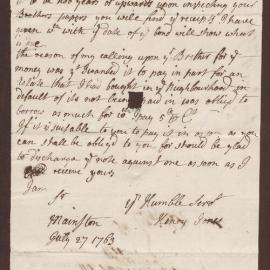 to be 200 years or upwards upon inspecting your
Brothers papers you will find yᵉ receipt I have
given wᵗʰ yᵉ Date of yᵉ bond will show what
is due
the reason of my calling upon yʳ Brother for yᵉ
money was yᵗ I wanted it to pay in part for an
estate that I had bought in yᵉ Neighbourhood for
default of its not being paid in was oblig'd to
borrow as much for to pay 5 pʳ Cᵗ
If it is suitable to you to pay it in as soon as you
can shall be oblig'd to you for should be glad
to discharge yᵉ note against one as soon as I
receive yours
I am
Sʳ
yʳ Humble Servᵗ
Mainston
Henry
July 27 1763